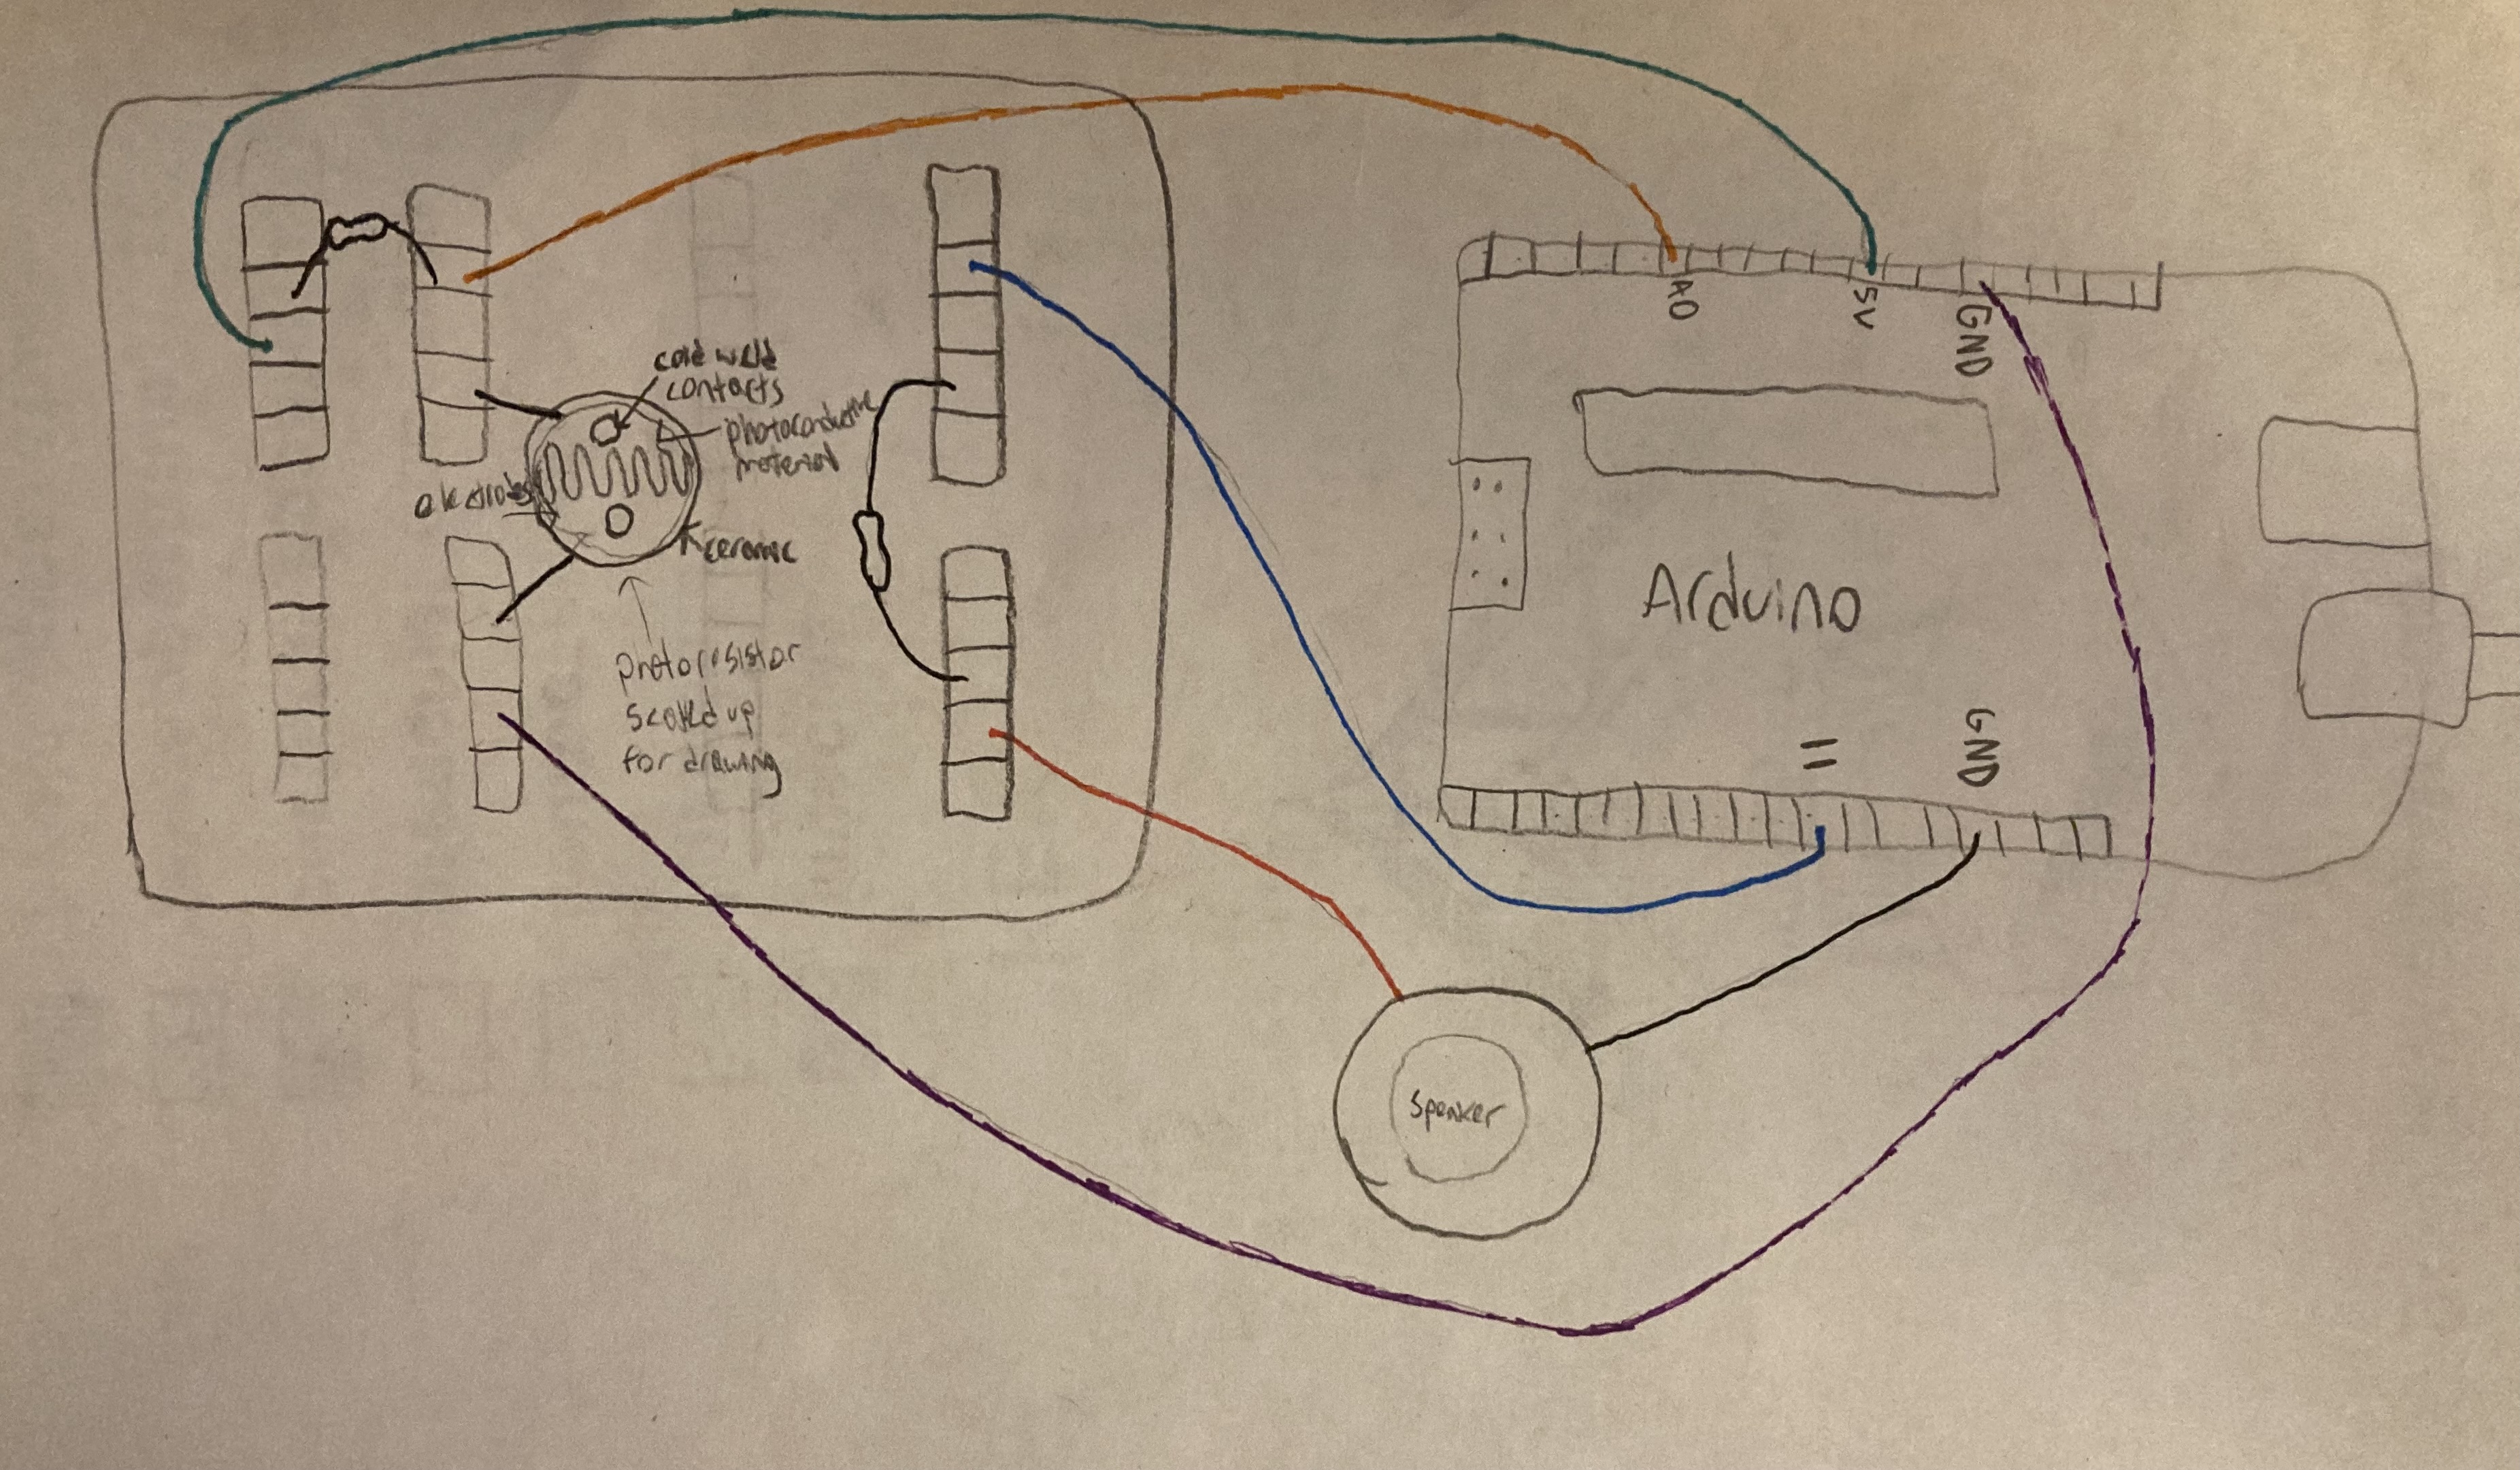 cold weld
contacts
photoconductive
material
electrodes
ceramic
photoresistor
scaled up
for drawing
A0
5V
GND
Arduino
11
GND
Speaker